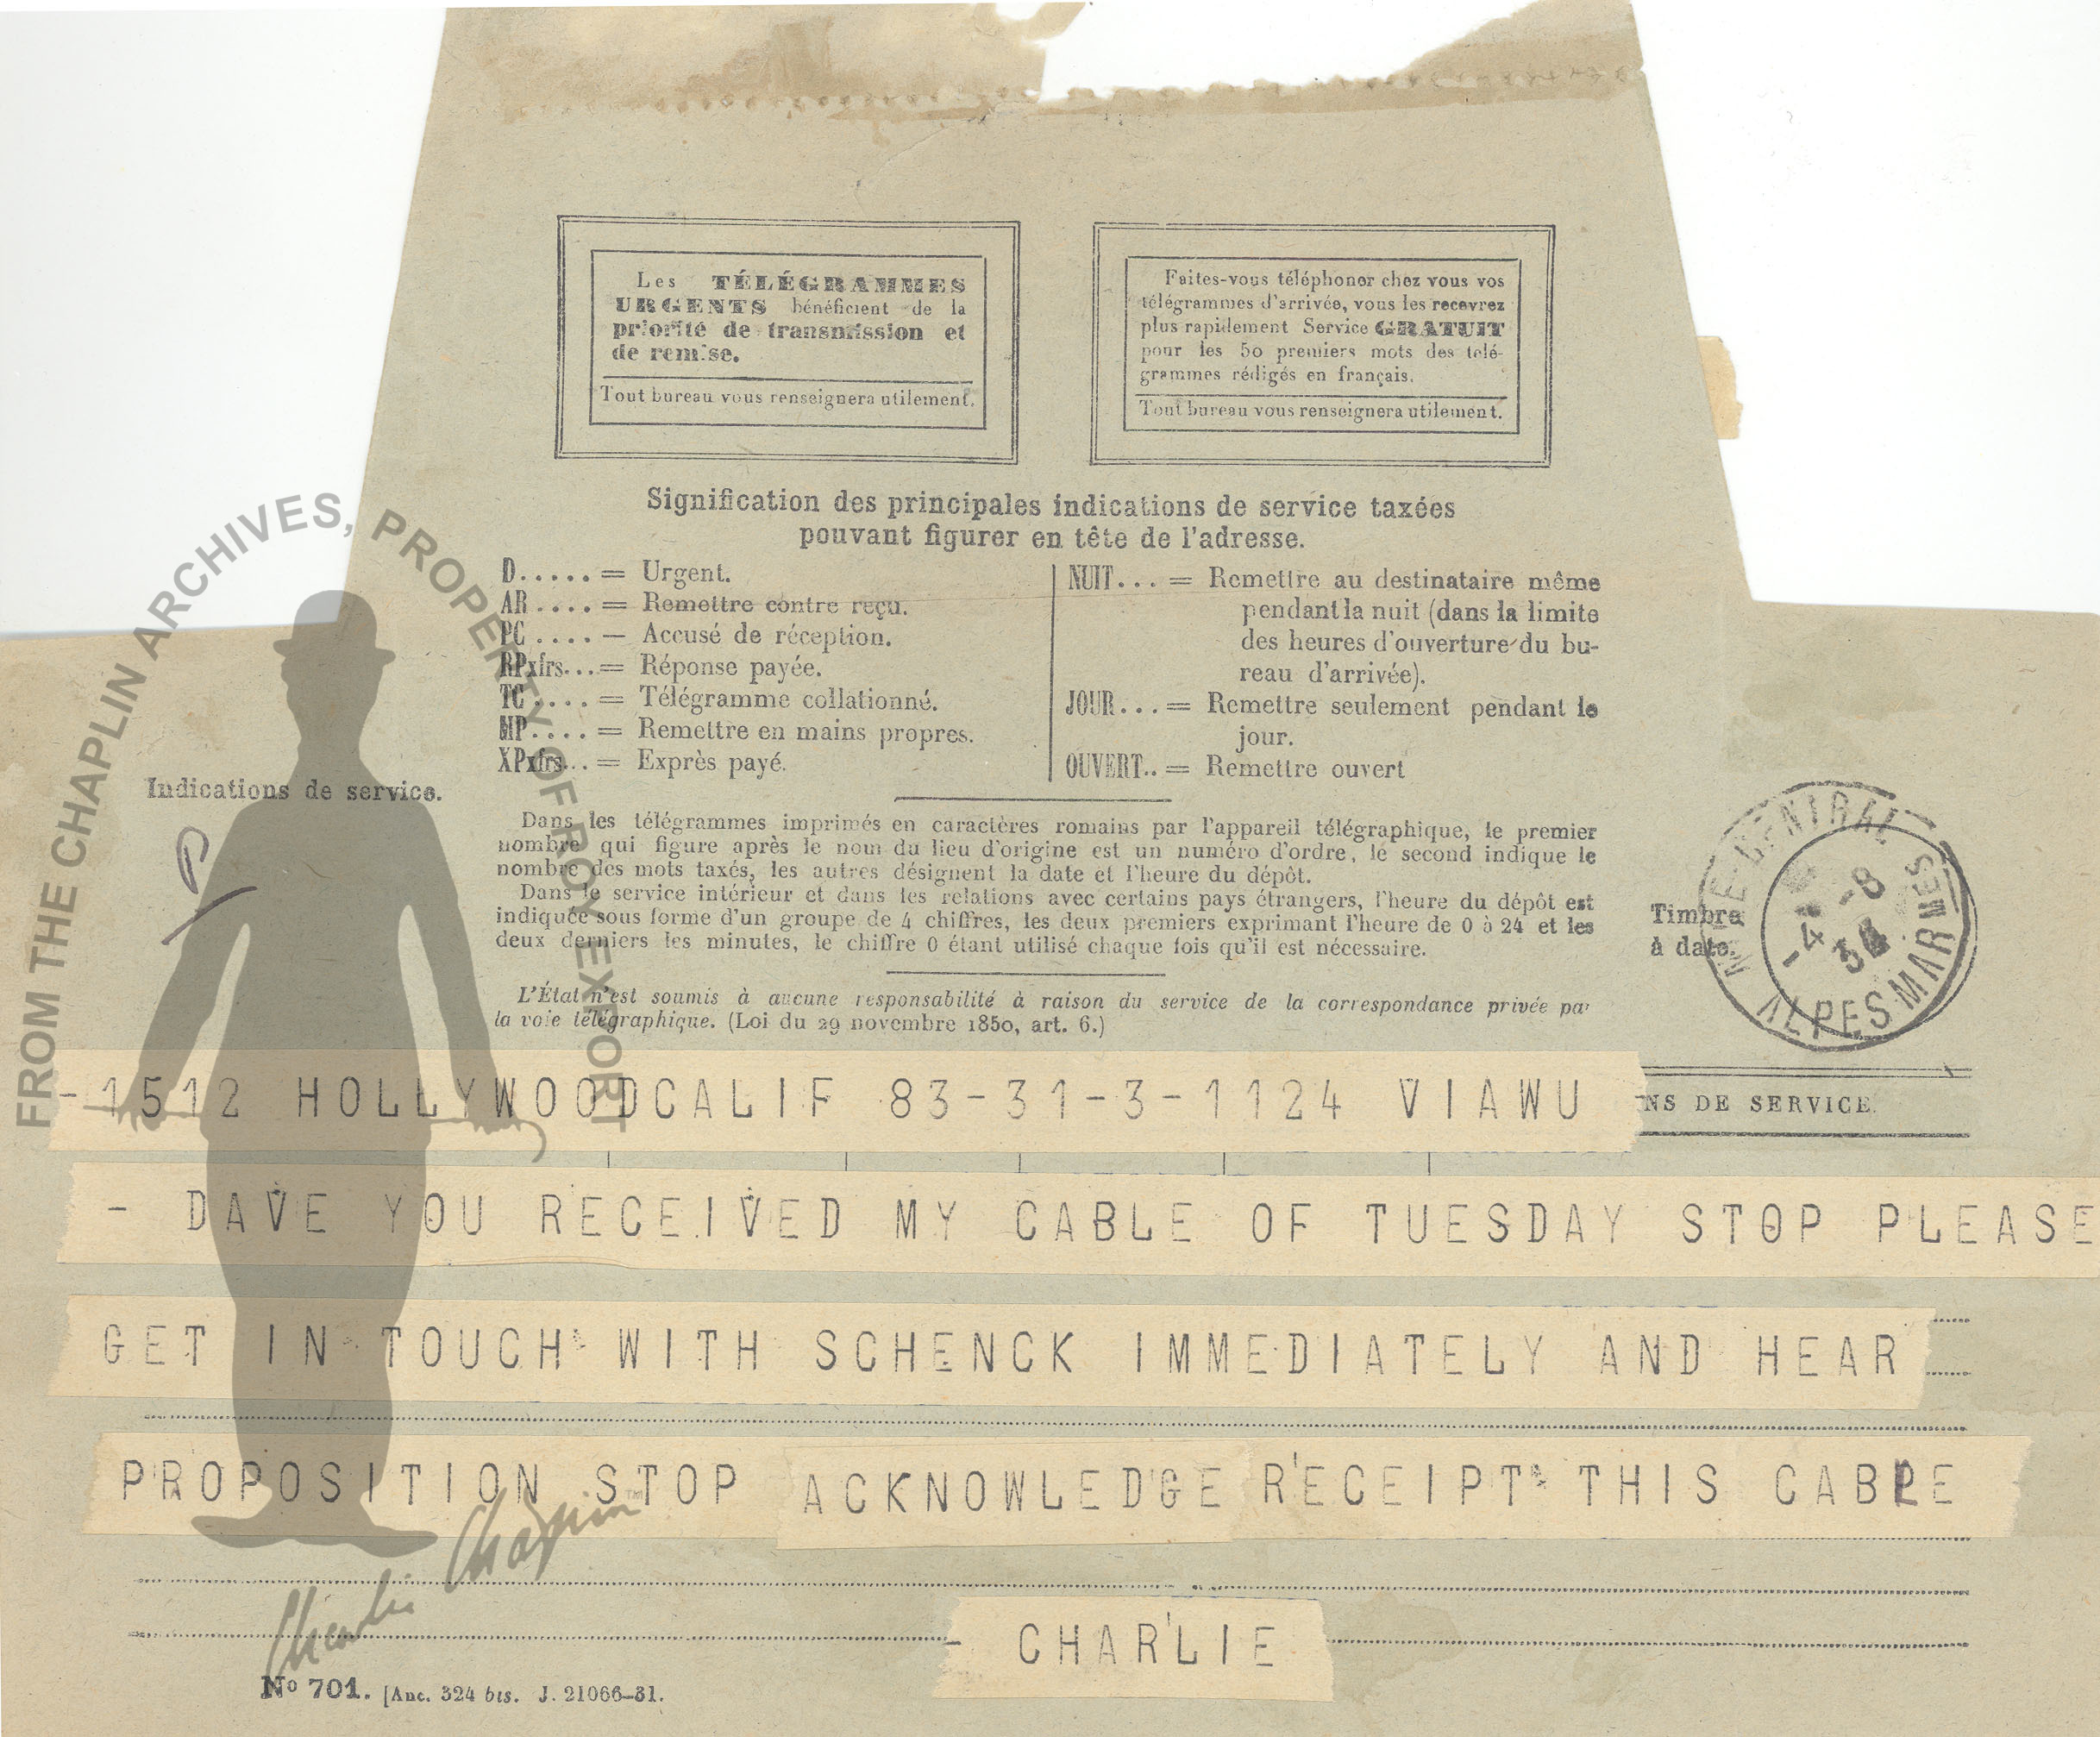 Les TÉLÉGRAMMES
URGENTS bénéficient de la
priorité de transmission et
de remise.
Tout bureau vous renseignera utilement.
Faites-vous téléphoner chez vous vos
télégrammes d'arrivée, vous les recevrez
plus rapidement Service GRATUIT
pour les 50 premiers mots des télé-
grammes rédigés en français.
Tout bureau vous renseignera utilement.
Signification des principales indications de service taxées
pouvant figurer en tête de l'adresse.
D..... = Urgent.
AR .... = Remettre contre reçu.
PC .... — Accusé de réception.
RPxfrs...= Réponse payée.
TC .... = Télégramme collationné.
MP.... = Remettre en mains propres.
XPxfrs... = Exprès payé.
NUIT... = Remettre au destinataire même
pendant la nuit (dans la limite
des heures d'ouverture du bu-
reau d'arrivée).
JOUR... = Remettre seulement pendant le
jour.
OUVERT.. = Remettre ouvert
Indications de service.
Dans les télégrammes imprimés en caractères romains par l'appareil télégraphique, le premier
nombre qui figure après le nom du lieu d'origine est un numéro d'ordre, le second indique le
nombre des mots taxés, les autres désignent la date et l'heure du dépôt.
Dans le service intérieur et dans les relations avec certains pays étrangers, l'heure du dépôt est
indiquée sous forme d'un groupe de 4 chiffres, les deux premiers exprimant l'heure de 0 à 24 et les
deux derniers les minutes, le chiffre 0 étant utilisé chaque fois qu'il est nécessaire.
Timbre
à date.
CENTRAL
ALPES MARMES
L'État n'est soumis à aucune responsabilité à raison du service de la correspondance privée par
la voie télégraphique. (Loi du 29 novembre 1850, art. 6.)
-1512 HOLLYWOODCALIF 83-31-3-1124 VIAWU -
NS DE SERVICE.
- DAVE YOU RECEIVED MY CABLE OF TUESDAY STOP PLEASE
GET IN TOUCH WITH SCHENCK IMMEDIATELY AND HEAR
PROPOSITION STOP ACKNOWLEDGE RECEIPT THIS CABLE
- CHARLIE
Nº 701. [Anc. 324 bis. J. 21066-31.
FROM THE CHAPLIN ARCHIVES, PROPERTY OF ROY EXPORT
Charlie Chaplin™